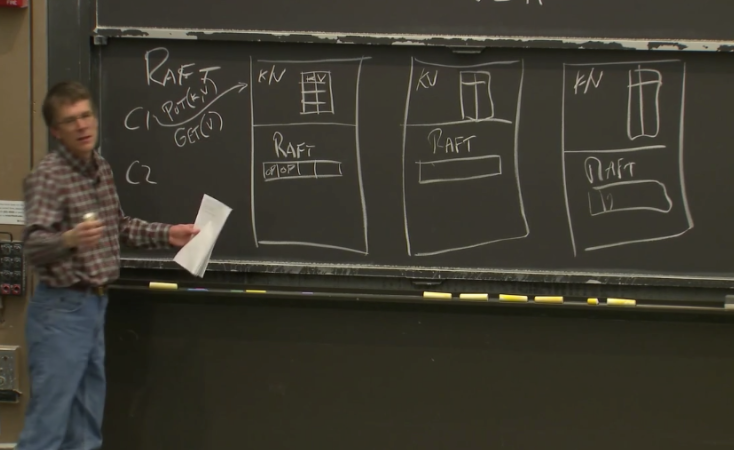 RAFT
C1
PUT(K,V)
GET(V)
C2
K/V
K V
RAFT
OP OP
KV
RAFT
K/V
RAFT